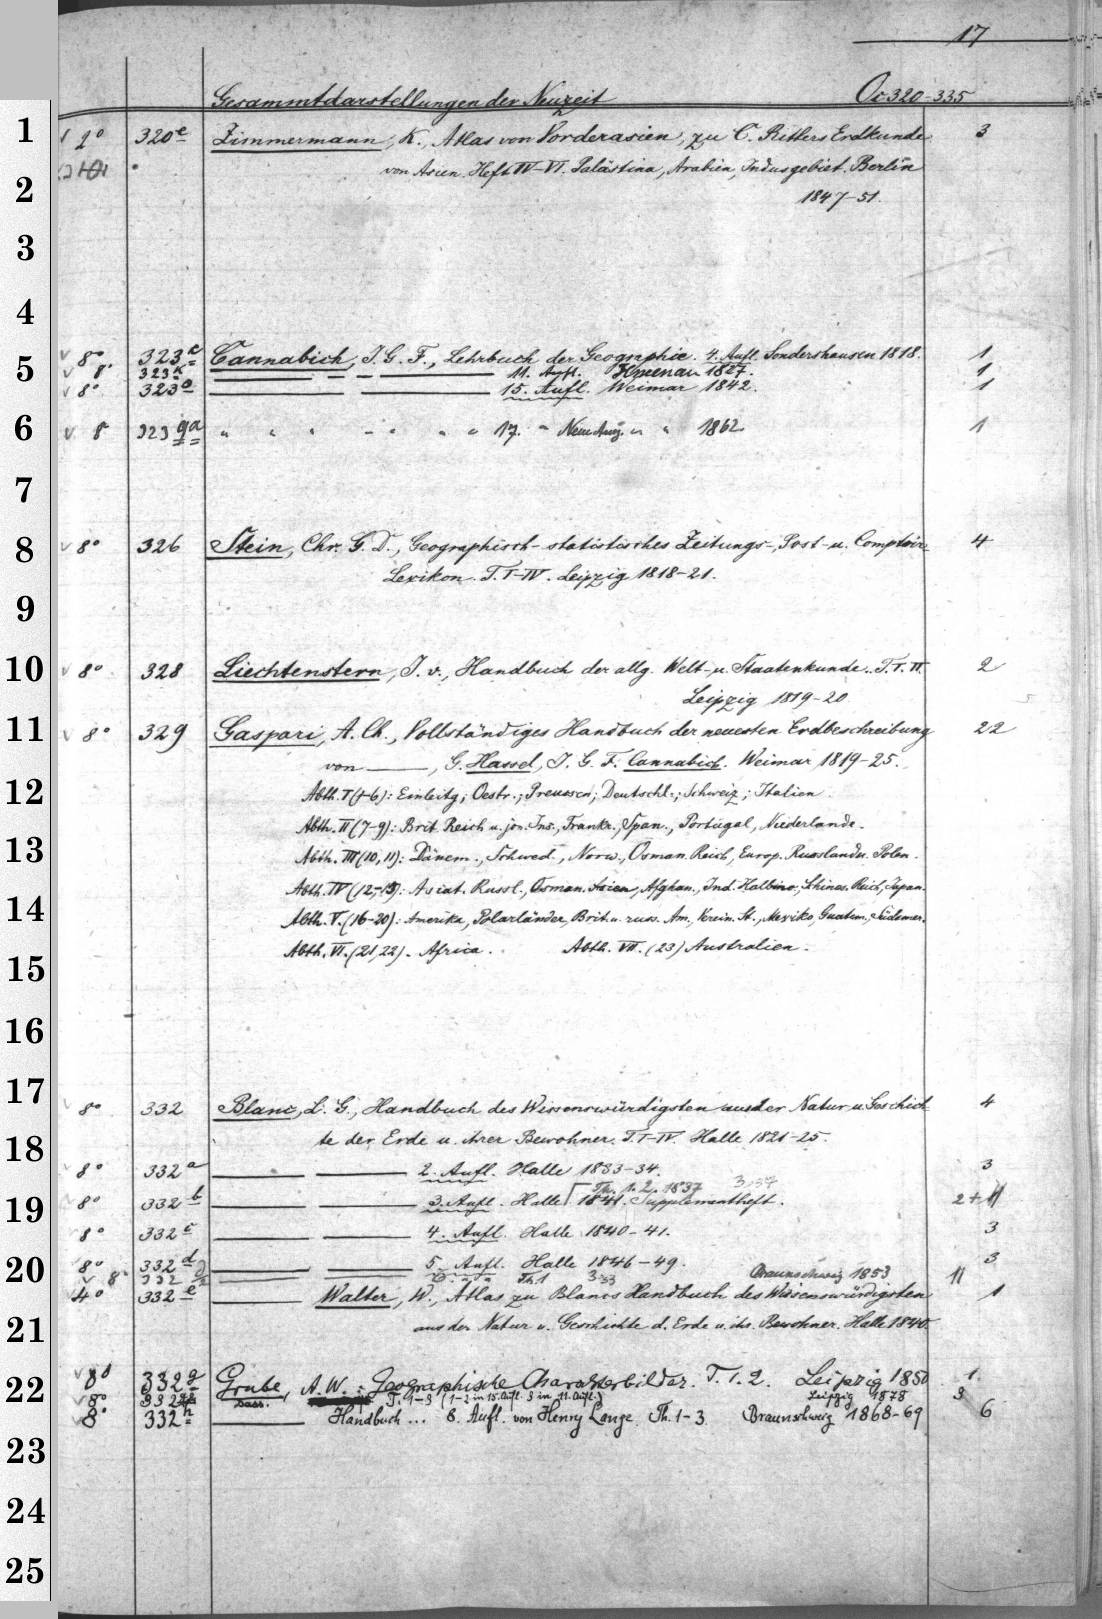 17
Gesammtdarstellungen der Neuzeit Oc 320-335
1 2° 320e Zimmermann, K., Atlas von Vorderasien, zu C. Ritters Erdkunde 3
2 von Asien. Heft IV-VI. Palästina, Arabien, Indusgebiet. Berlin
1847-51.
3
4
8° 323e Cannabich, J. G. F., Lehrbuch der Geographie. 4. Aufl. Sondershausen 1818. 1
5 8° 323k — — — 11. Aufl. Ilmenau 1827. 1
8° 323o — — 15. Aufl. Weimar 1842. 1
6 8 323 qa " " " " " " " 17. " Neue Ausg. " " 1862. 1
7
8 8° 326 Stein, Chr. G. D., Geographisch-statistisches Zeitungs-, Post- u. Comptoir- 4
Lexikon. T. I-IV. Leipzig 1818-21.
9
10 8° 328 Liechtenstern, J. v., Handbuch der allg. Welt- u. Staatenkunde. T. I. II. 2
Leipzig 1819-20
11 8° 329 Gaspari, A. Ch., Vollständiges Handbuch der neuesten Erdbeschreibung 22
von —, G. Hassel, J. G. F. Cannabich. Weimar 1819-25.
12 Abth. I (1-6): Einleitg; Oestr.; Preussen; Deutschl.; Schweiz; Italien.
Abth. II (7-9): Brit. Reich u. jon. Ins., Frankr., Span., Portugal, Niederlande.
13 Abth. III (10, 11): Dänem., Schwed., Norw., Osman. Reich, Europ. Russland u. Polen.
Abth. IV (12-15): Asiat. Russl., Osman. Asien, Afghan., Ind. Halbins., Chines. Reich, Japan.
14 Abth. V. (16-20): Amerika, Polarländer, Brit. u. russ. Am., Verein. St., Mexiko, Guatem., Südamer.
15 Abth. VI. (21, 22). Africa. Abth. VII. (23) Australien.
16
17 8° 332 Blanc, L. G., Handbuch des Wissenswürdigsten aus der Natur u. Geschich- 4
te der Erde u. ihrer Bewohner. T. I-IV. Halle 1821-25.
18 8° 332a — — 2. Aufl. Halle 1833-34. 3
Th. 1. 2. 1837
19 8° 332b — — 3. Aufl. Halle 1841. Supplementheft. 2+1
8° 332c — — 4. Aufl. Halle 1840-41. 3
20 8° 332d — — 5. Aufl. Halle 1846-49. 3
8° 332 — — 6. " " Th. 1 Braunschweig 1853 1
4° 332e — Walter, W., Atlas zu Blancs Handbuch des Wissenswürdigsten 1
21 aus der Natur u. Geschichte d. Erde u. ihr. Bewohner. Halle 1840.
22 8° 332g Grube, A. W.: Geographische Charakterbilder. T. 1. 2. Leipzig 1850 1.
8° 332 dass. T. 1-3 (1-2 in 15. Aufl. 3 in 11. Aufl.) Leipzig 1878 3
8° 332h — Handbuch ... 8. Aufl. von Henry Lange. Th. 1-3. Braunschweig 1868-69 6
23
24
25